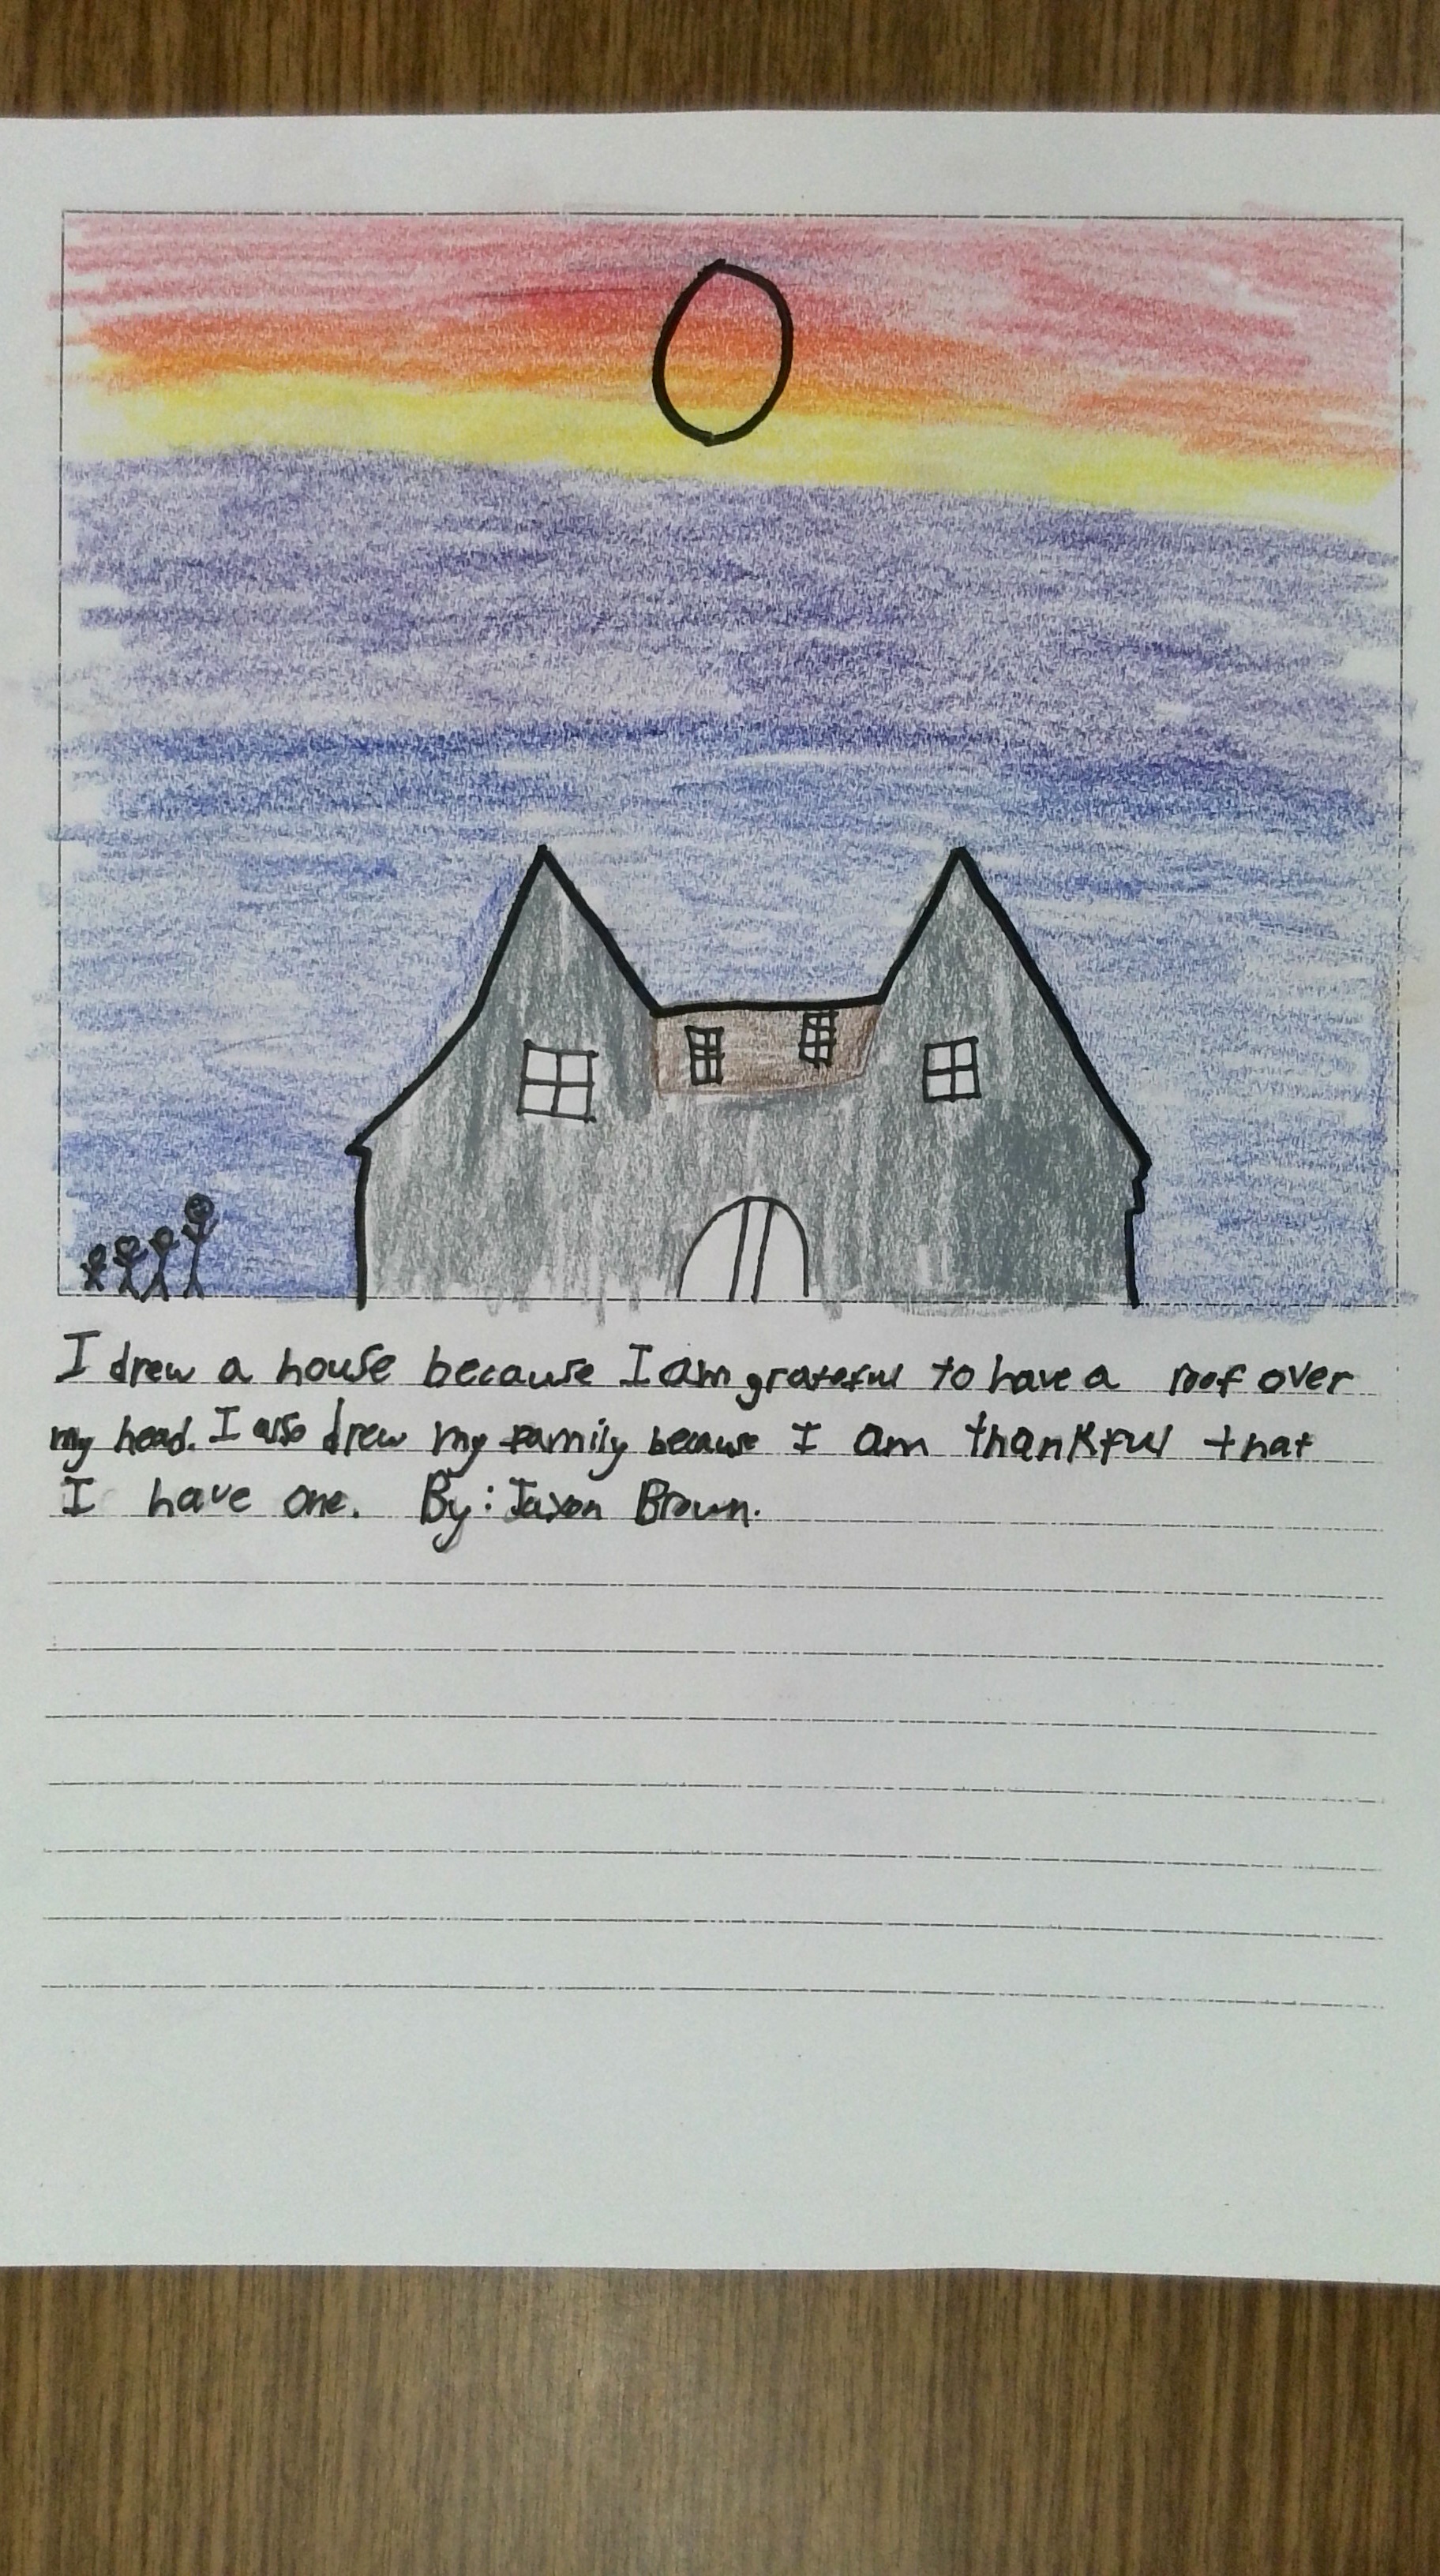 I drew a house because I am grateful to have a roof over
my head. I also drew my family because I am thankful that
I have one. By: Jaxon Brown.